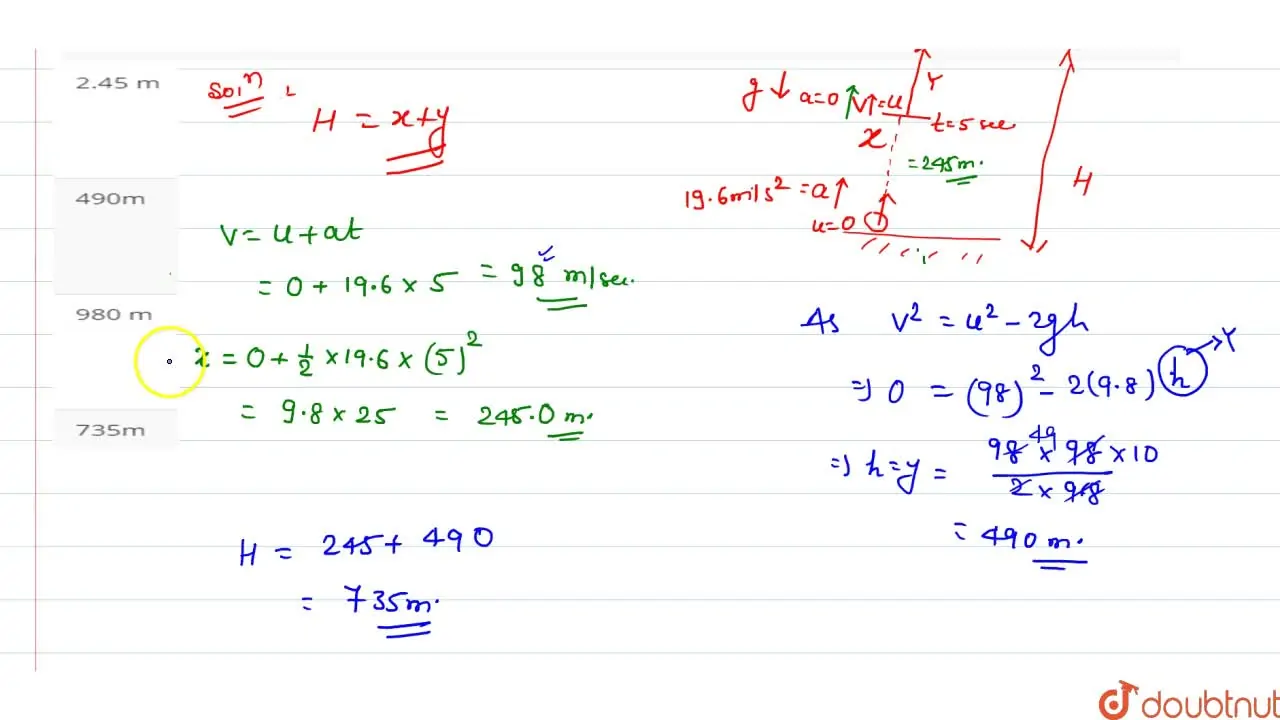 2.45 m
490m
980 m
735m
Solⁿ
H = x+y
V = u + at
= 0 + 19.6 × 5 = 98 m/sec.
x = 0 + 1/2 × 19.6 × (5)²
= 9.8 × 25 = 245.0 m.
H = 245 + 490
= 735m.
g ↓ a=0 ↑ V↑=u Y
t=5 sec
x
= 245m.
H
19.6 m/s² = a ↑
u=0
As V² = u² - 2gh
⇒ 0 = (98)² - 2(9.8) h → Y
⇒ h=y = 98 × 98 × 10 / 2 × 9.8
49
= 490 m.
doubtnut